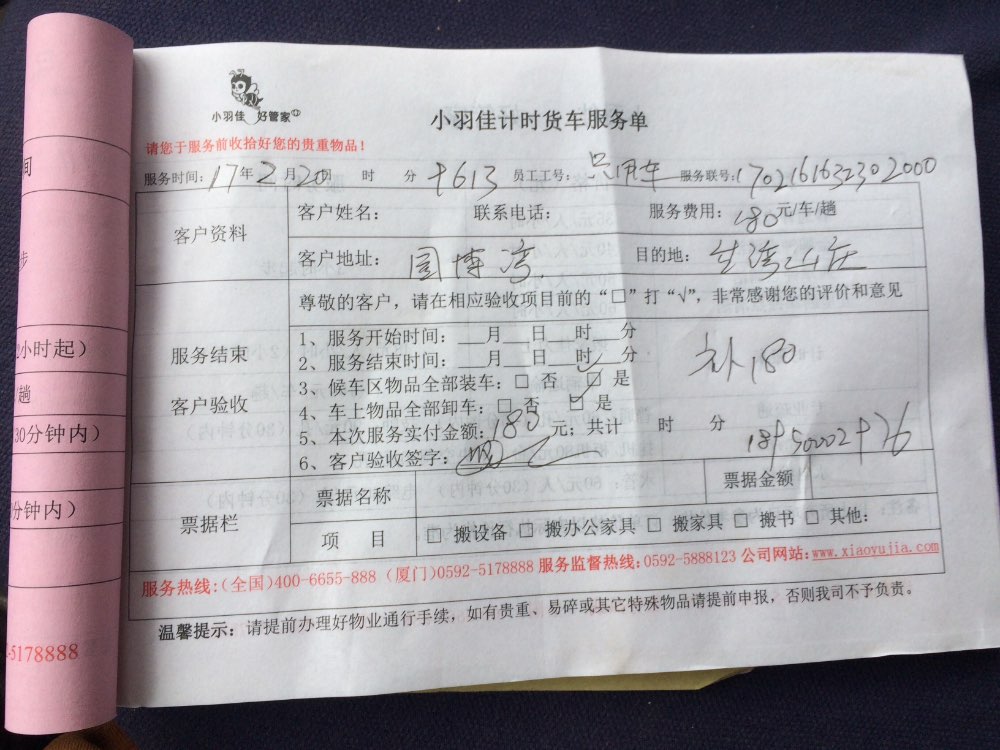 小羽佳 好管家
小羽佳计时货车服务单
请您于服务前收拾好您的贵重物品！
服务时间：17年2月20日 时 分 员工工号： 服务联号：
客户资料
客户姓名： 联系电话： 服务费用：180元/车/趟
客户地址：国博湾 目的地：
服务结束
客户验收
尊敬的客户，请在相应验收项目前的“□”打“√”，非常感谢您的评价和意见
1、服务开始时间：__月__日__时__分
2、服务结束时间：__月__日__时__分
3、候车区物品全部装车：□ 否 □ 是
4、车上物品全部卸车：□ 否 □ 是
5、本次服务实付金额：180元；共计 时 分
6、客户验收签字：
180
票据栏
票据名称 票据金额
项 目 □ 搬设备 □ 搬办公家具 □ 搬家具 □ 搬书 □ 其他：
服务热线：（全国）400-6655-888（厦门）0592-5178888 服务监督热线：0592-5888123 公司网站：www.xiaoyujia.com
温馨提示：请提前办理好物业通行手续，如有贵重、易碎或其它特殊物品请提前申报，否则我司不予负责。
间
步
2小时起）
/趟
30分钟内）
分钟内）
-5178888